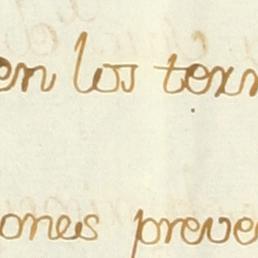 en los term
ones preve